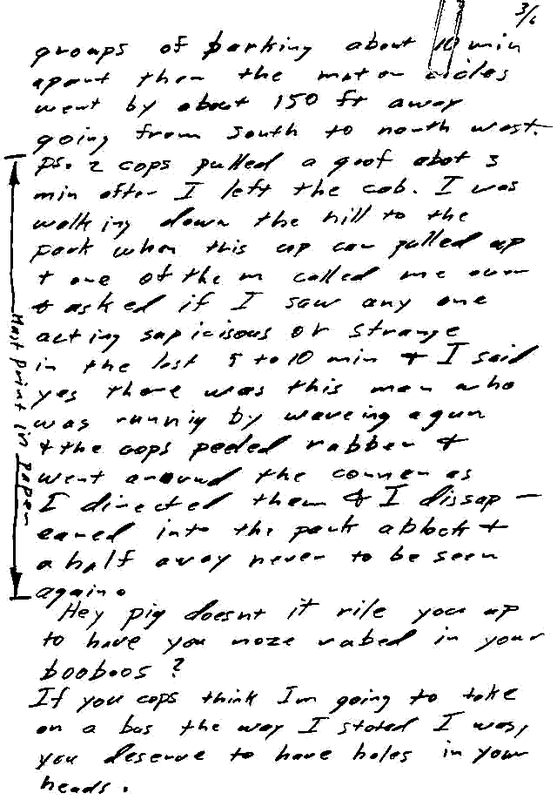 3/6
groups of parking about 10 min
apart then the motor cicles
went by about 150 ft away
going from south to north west.
ps. 2 cops pulled a goof abot 3
min after I left the cab. I was
walking down the hill to the
park when this cop car pulled up
+ one of them called me over
+ asked if I saw any one
acting sapicisous or strange
in the last 5 to 10 min + I said
yes there was this man who
was runnig by waveing a gun
+ the cops peeled rubber +
went around the corner as
I directed them + I dissap -
eared into the park a block +
a half away never to be seen
again.
Must print in paper
Hey pig doesnt it rile you up
to have you noze rubed in your
booboos?
If you cops think Im going to take
on a bus the way I stated I was,
you deserve to have holes in your
heads.